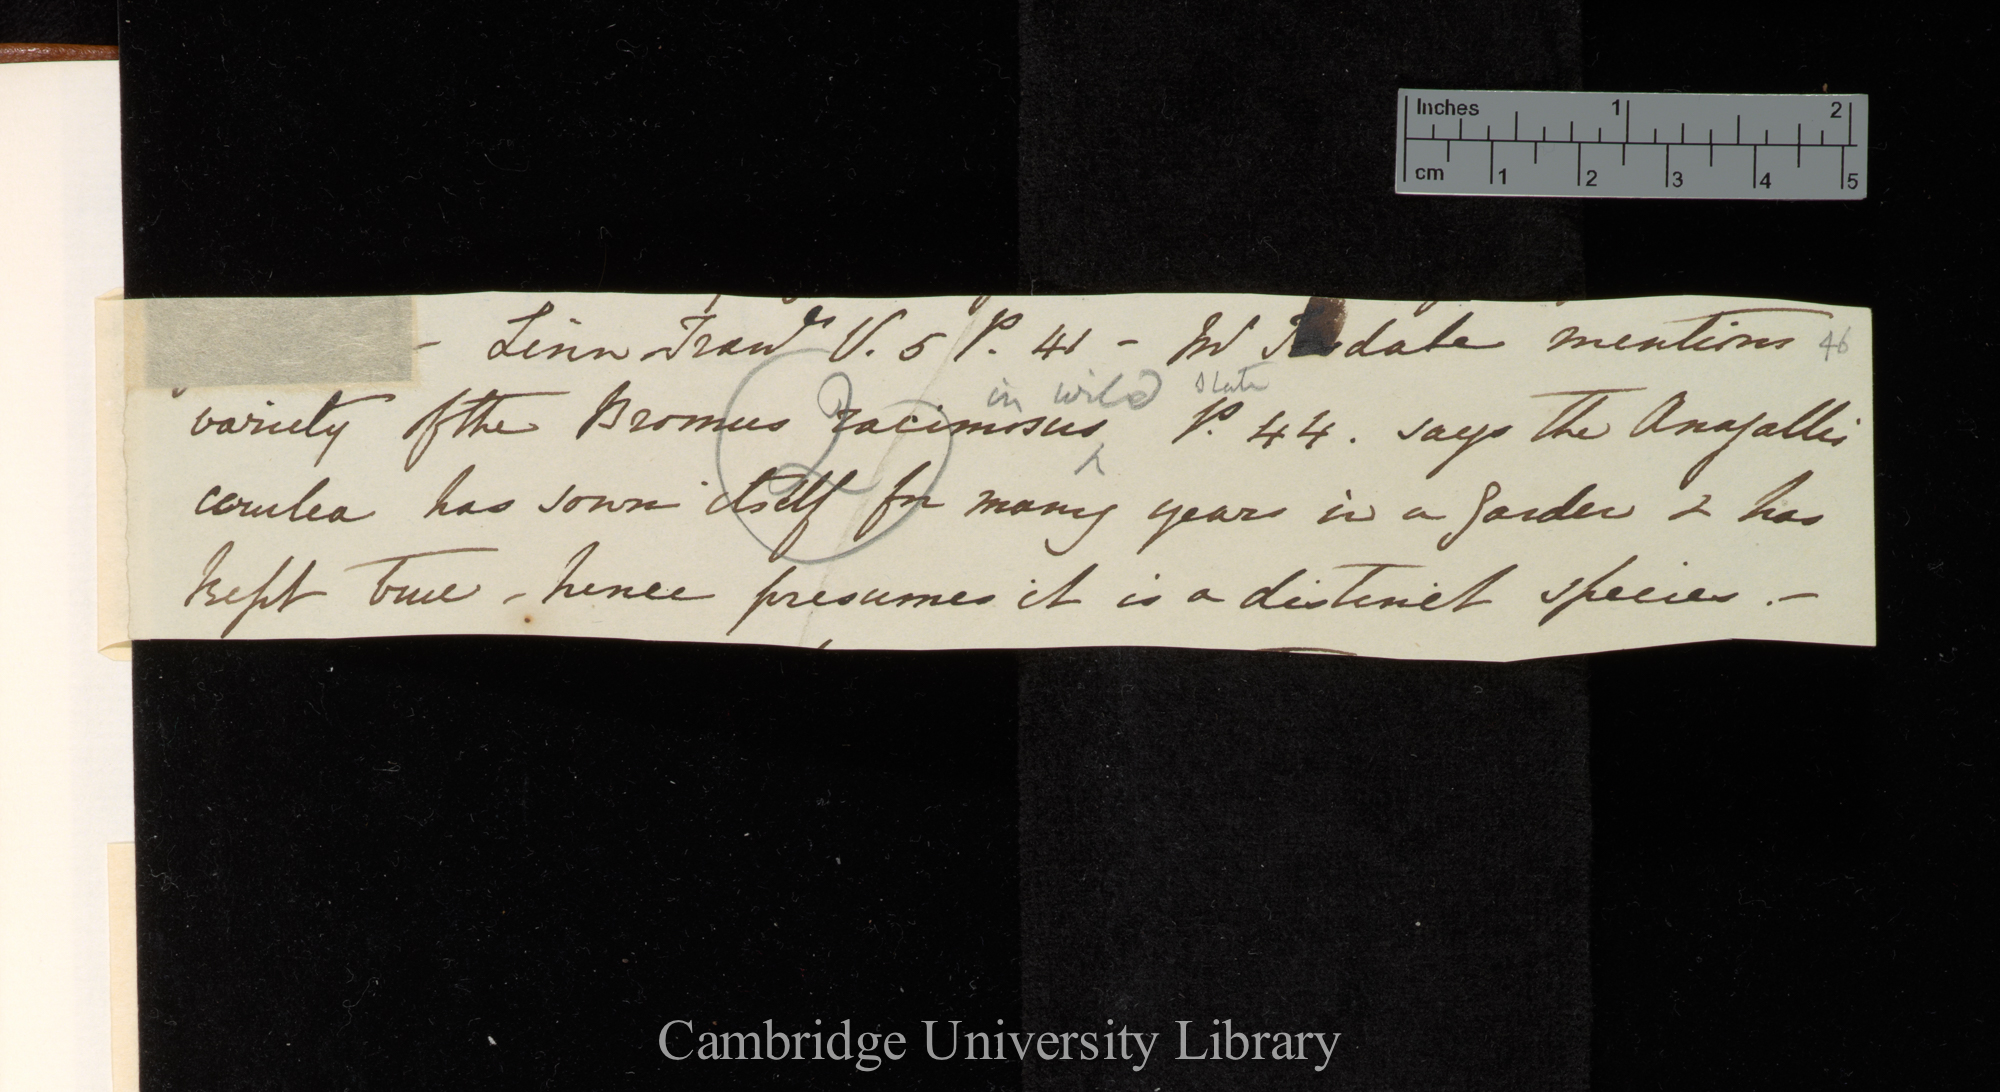 Inches 1 2
cm 1 2 3 4 5
- Linn Trans V. 5 P. 41 - Mr dale mentions 46
in wild state
variety of the Bromus racimosus P. 44. says the Anagallis
2
cerulea has sown itself for many years in a garden & has
kept true - hence presumes it is a distinct species. -
Cambridge University Library